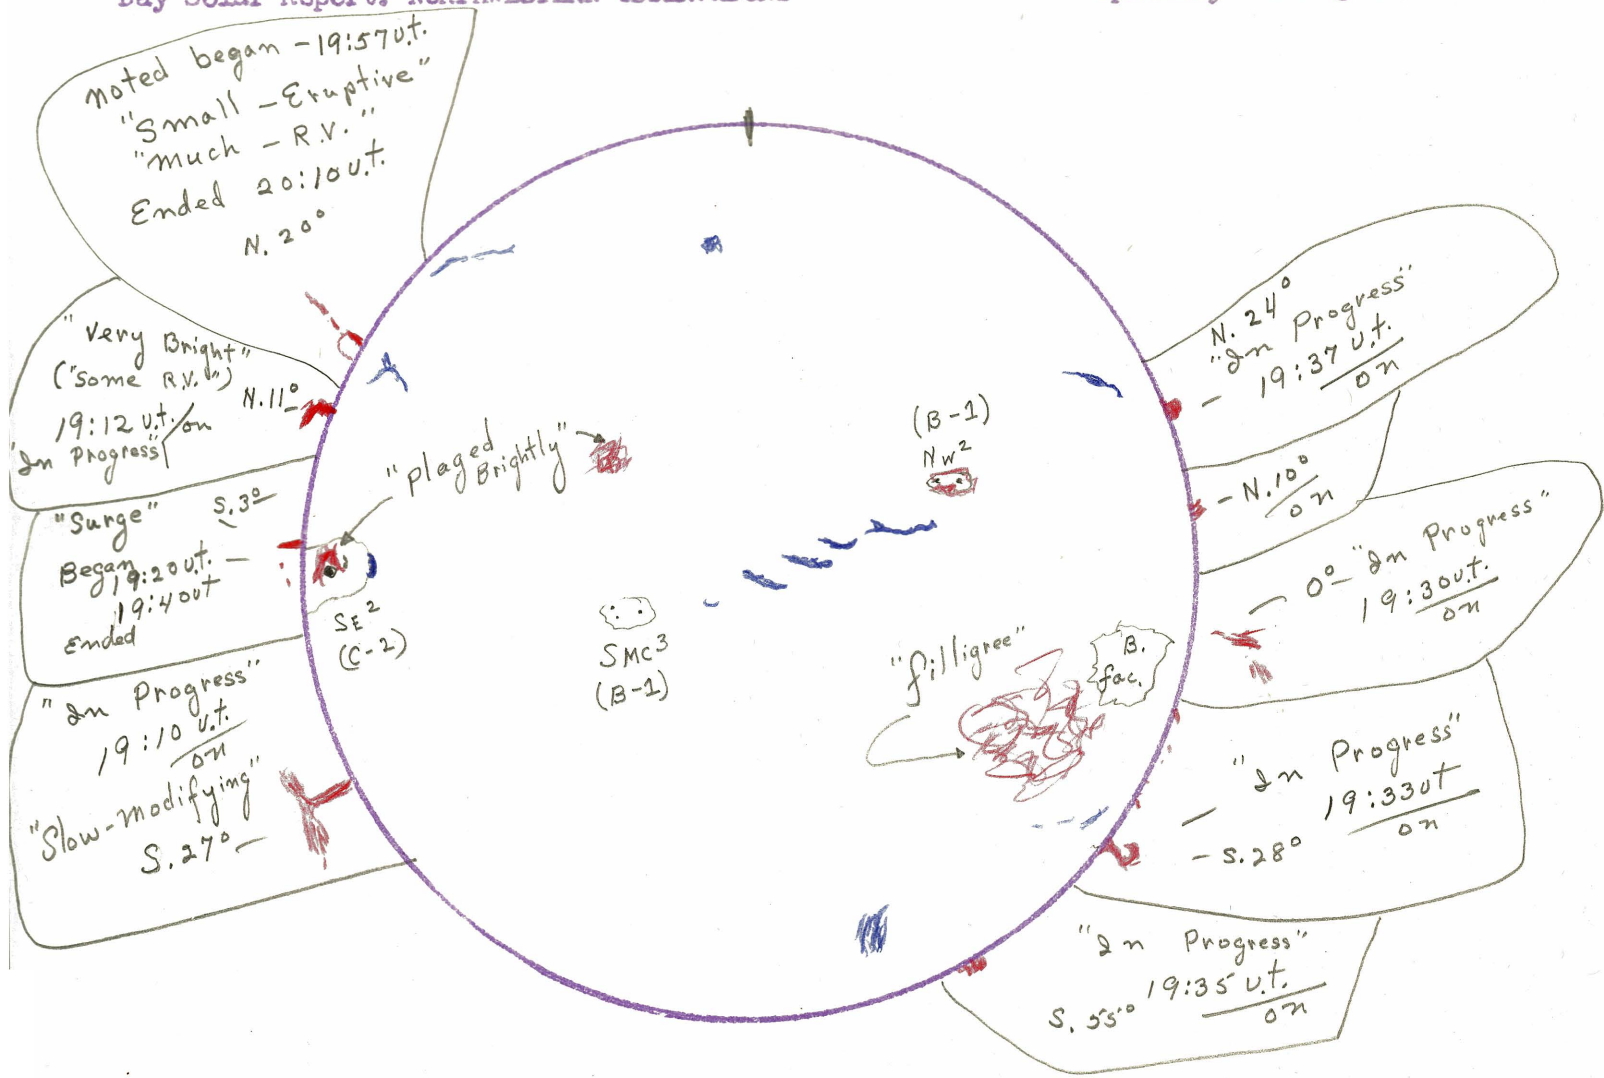 noted began - 19:57 u.t.
"Small - Eruptive"
"much - R.V."
Ended 20:10 u.t.
N. 20°
"Very Bright"
("Some R.V.")
N.11°
19:12 u.t./on
"In Progress"
"Surge"
S.3°
Began
19:20 u.t. -
19:40 ut
Ended
"In Progress"
19:10 u.t.
on
"Slow-modifying"
S. 27° -
"plaged
Brightly"
SE²
(C-2)
SMC³
(B-1)
(B-1)
NW²
"filligree"
B.
fac.
N. 24°
"In Progress"
19:37 u.t.
on
- N.10°
on
0° - "In Progress"
19:30 u.t.
on
"In Progress"
19:33 ut
on
- S. 28°
"In Progress"
19:35 u.t.
on
S. 55°